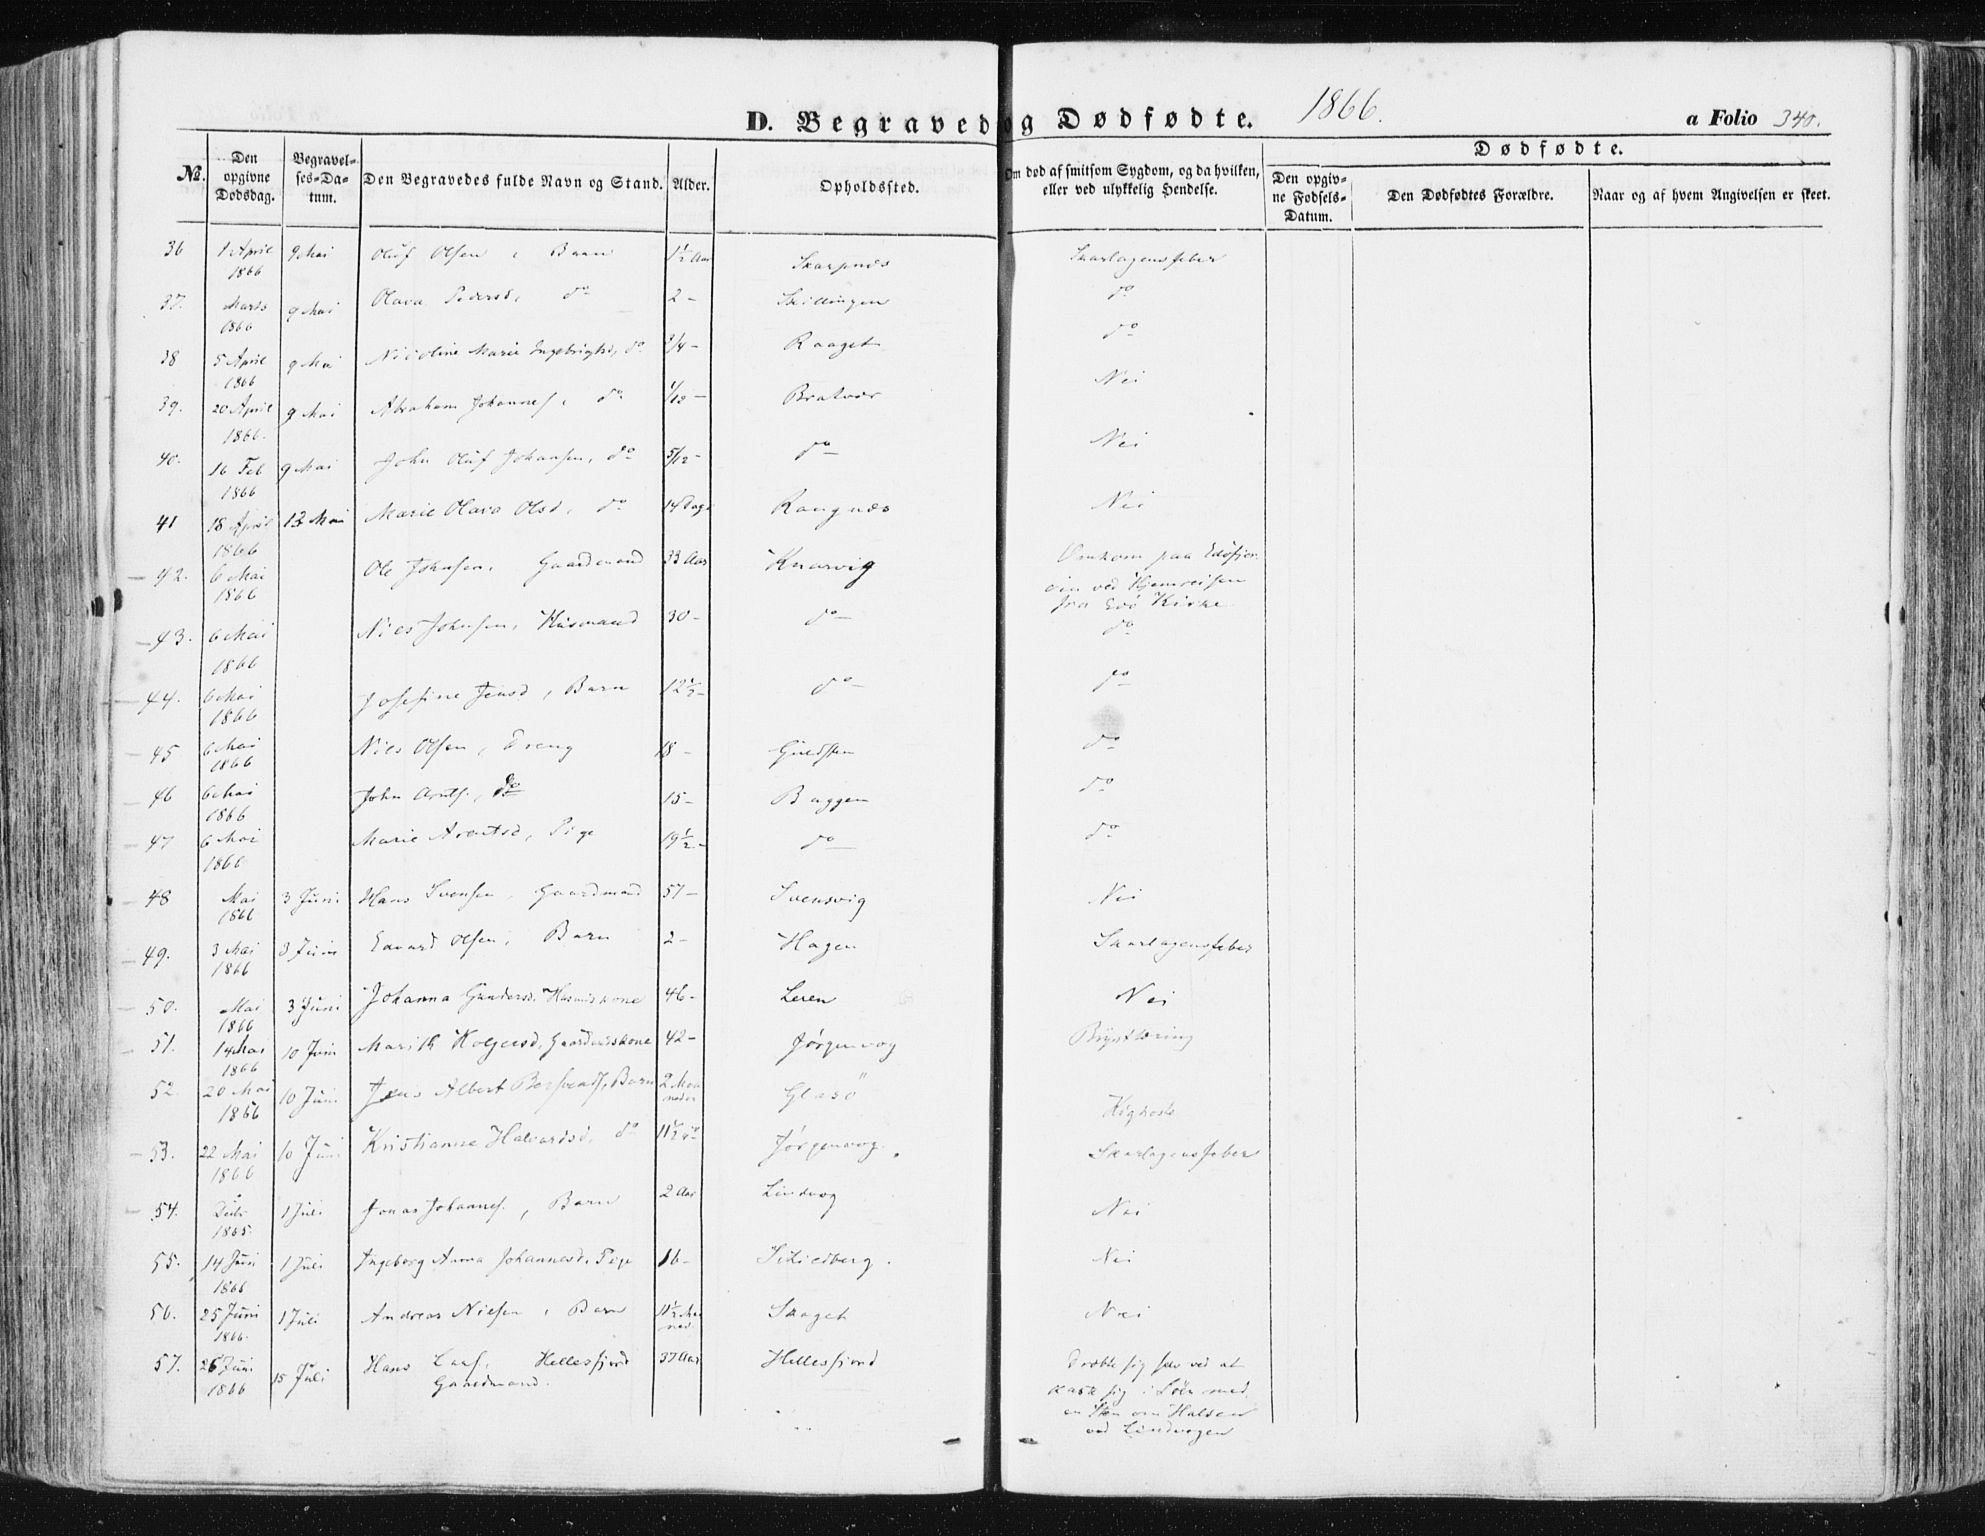 D. Begravede og Dødfødte. 1866. a Folio 340.
№.
Den opgivne Dødsdag.
Begravelses-Datum.
Den Begravedes fulde Navn og Stand.
Alder.
Opholdssted.
Om død af smitsom Sygdom, og da hvilken, eller ved ulykkelig Hendelse.
Dødfødte.
Den opgivne Fødsels-Datum.
Den Dødfødtes Forældre.
Naar og af hvem Angivelsen er skeet.
36 1 April 1866 9 Mai Oluf Olsen, Barn 1½ Aar Skarpnes Skarlagensfeber
37. Marts 1866 9 Mai Olava Pedersd, do 2 - Skillingen do
38 5 April 1866 9 Mai Nicoline Marie Ingebrigtsd, do 3/4 - Raaget do
39. 20 April 1866. 9 Mai Abraham Johannes, do 1/12 - Bratvær Nei
40. 16 Feb 1866 9 Mai John Oluf Johansen, do 5/12 - do Nei
41 18 April 1866 13 Mai Marie Olava Olsd, do 14 Dage Rangnæs Nei
42. 6 Mai 1866 Ole Johnsen, Gaardmand 33 Aar Knarvig Omkom paa Edøfjorden ved Hjemreisen fra Edø Kirke
43. 6 Mai 1866 Niels Johnsen, Husmand 30 - do do
44. 6 Mai 1866 Josefine Jensd, Barn 12½ - do do
45 6 Mai 1866 Nils Olsen, Dreng 18 - Guldsten do
46 6 Mai 1866 John Arnts., do 15 - Buggen do
47 6 Mai 1866 Marie Arentsd, Pige 19½ - do do
48 Mai 1866 3 Juni Hans Svensen, Gaardmand 57 - Svensvig Nei
49. 3 Mai 1866 3 Juni Edvard Olsen, Barn 2 - Hagen Skarlagensfeber
50. Mai 1866 3 Juni Johanna Gundersd. Husmdskone 46 - Leren Nei
51. 14 Mai 1866 10 Juni Marith Holgersd, Gaardmdskone 42 - Jørgenvog Brysttæring
52. 20 Mai 1866 10 Juni Jens Albert Barn 2 Maaneder Glasö Kighoste
53. 22 Mai 1866 10 Juni Kristianne Halvardsd, do 11½ do Jørgenvog. Skarlagensfeber
54. 1865. 1 Juli Jonas Johannes., Barn 2 Aar Lindvog Nei
55. 14 Juni 1866 1 Juli Ingeborg Anna Johannesd. Pige 16 - Nei
56. 25 Juni 1866. 1 Juli Andreas Nielsen, Barn 11½ Maaned Skaget Nei
57. 26 Juni 1866 15 Juli Hans Hellesfjord Gaardmand. 37 Aar Hellesfjord Dræbte sig selv ved at kaste sig i Søen med en Sten om Halsen ved Lindvogen